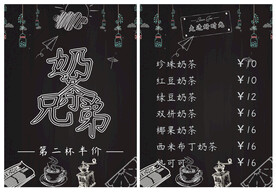 奶茶兄弟
第二杯半价
珍珠奶茶 ￥10
红豆奶茶 ￥10
绿豆奶茶 ￥12
双拼奶茶 ￥16
椰果奶茶 ￥16
西米布丁奶茶 ￥16
￥16